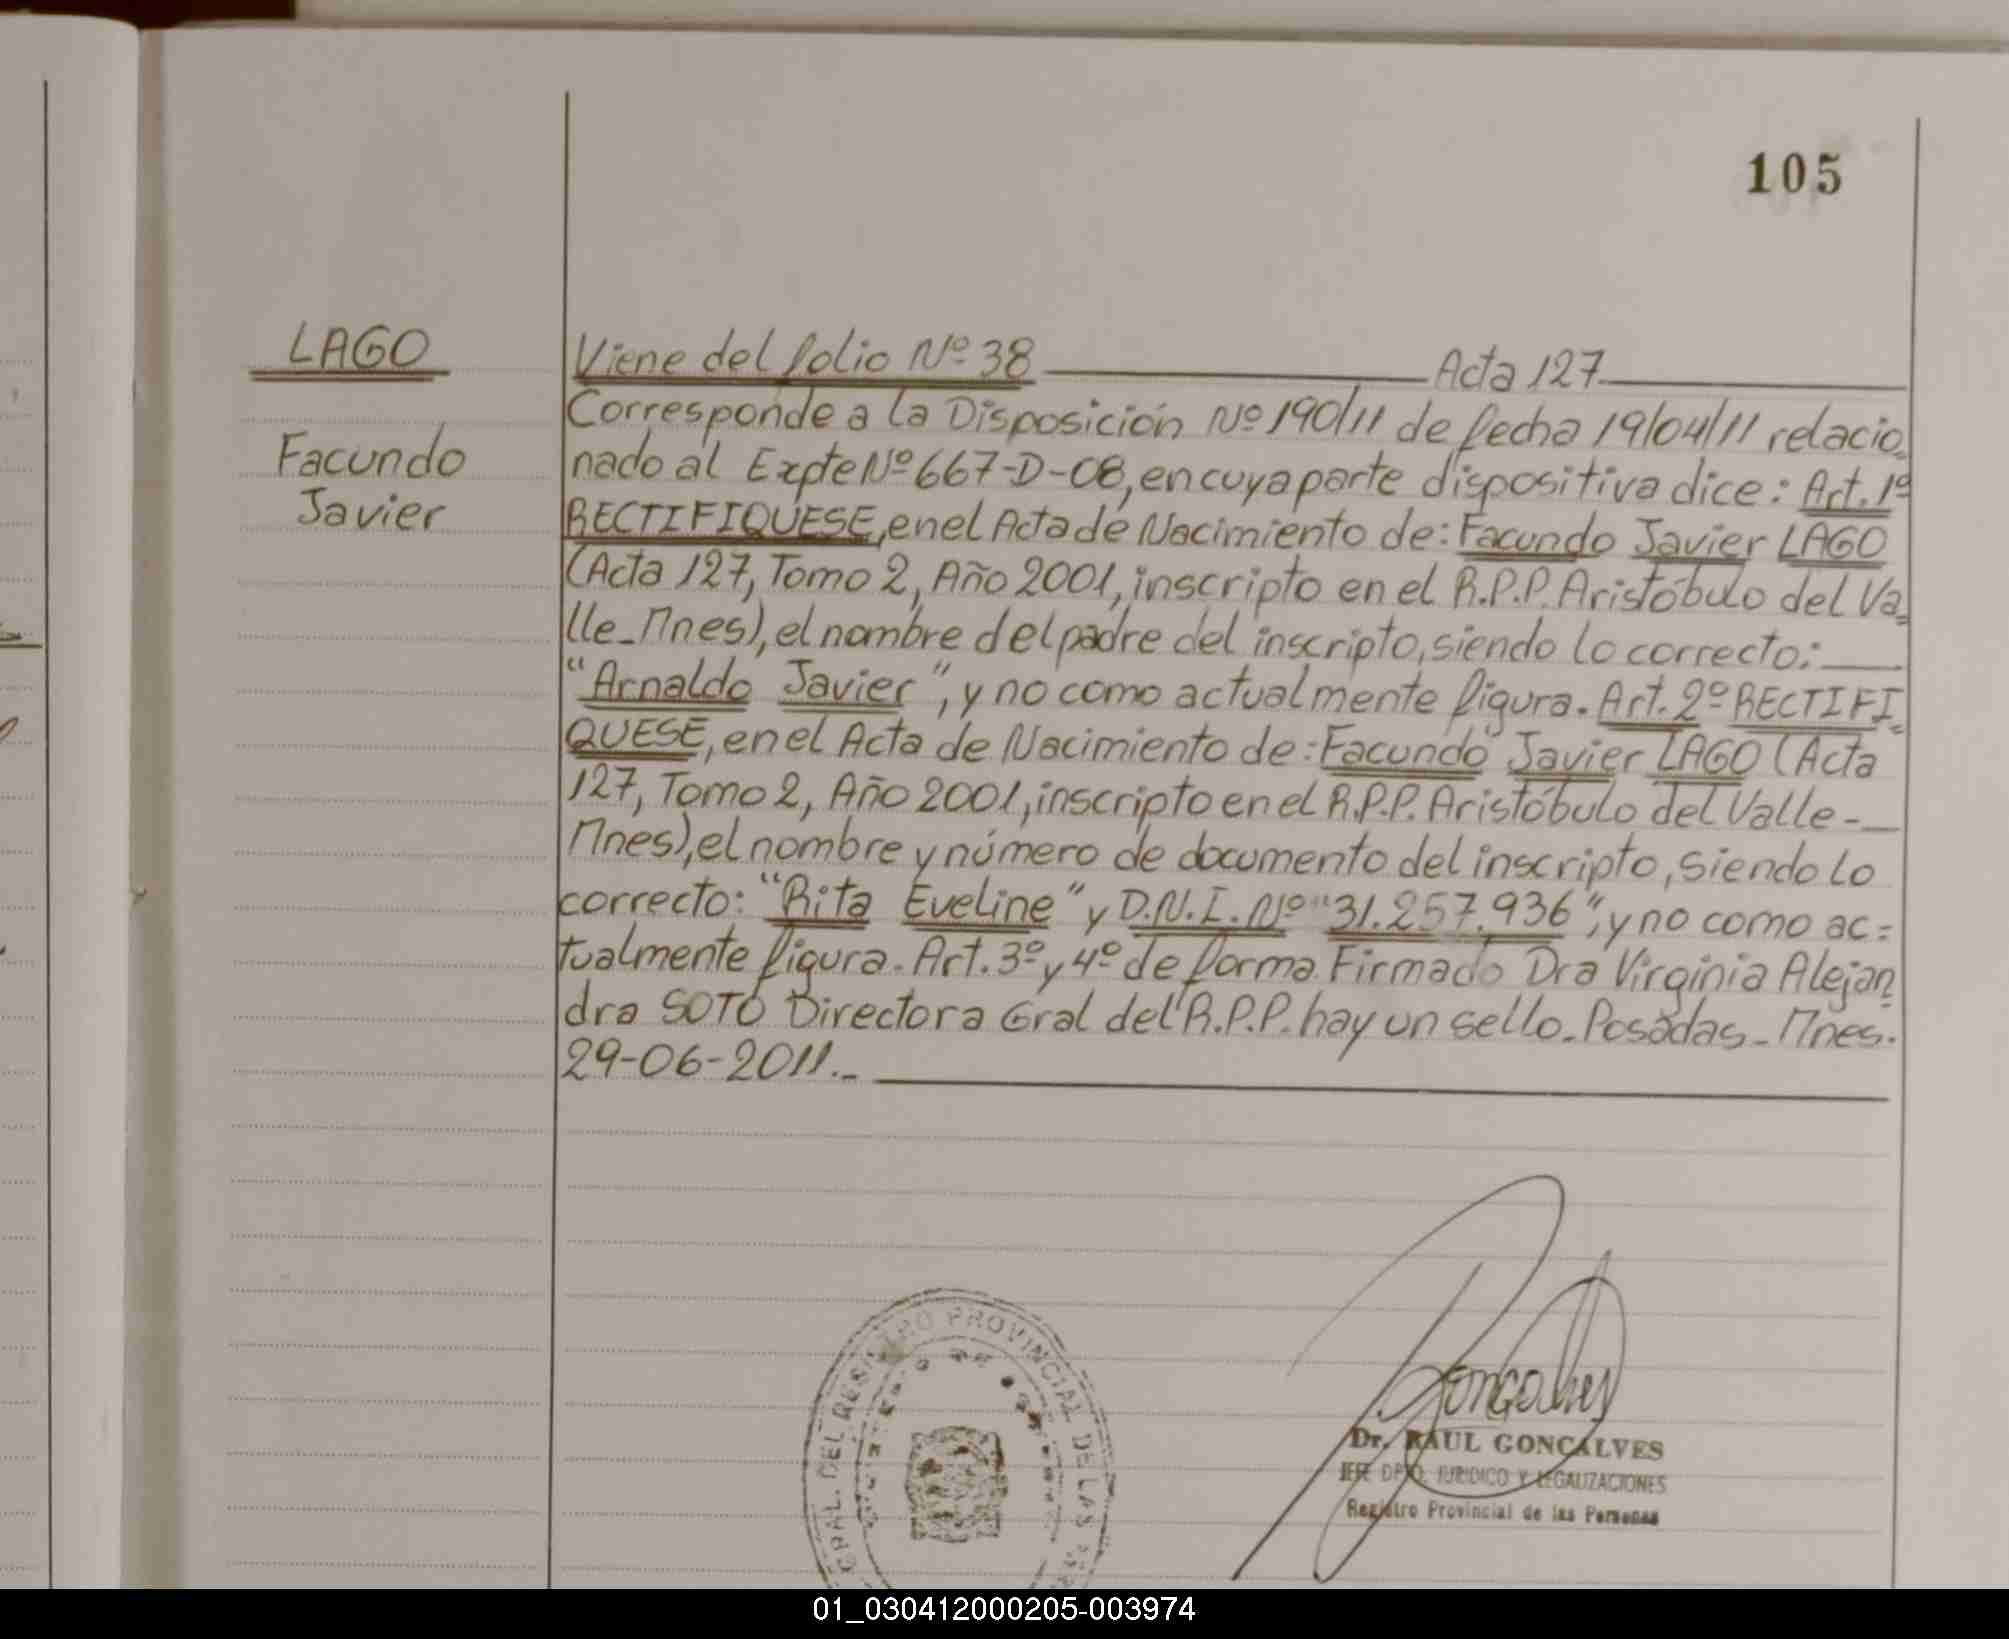 105
LAGO
Facundo
Javier
Viene del folio Nº 38 Acta 127
Corresponde a la Disposición Nº 190/11 de fecha 19/04/11 relacio-
nado al Expte Nº 667-D-08, en cuya parte dispositiva dice: Art. 1º
RECTIFIQUESE, en el Acta de Nacimiento de: Facundo Javier LAGO
(Acta 127, Tomo 2, Año 2001, inscripto en el R.P.P. Aristóbulo del Va=
lle_Mnes), el nombre del padre del inscripto, siendo lo correcto:
"Arnaldo Javier", y no como actualmente figura. Art. 2º RECTIFI=
QUESE, en el Acta de Nacimiento de: Facundo Javier LAGO (Acta
127, Tomo 2, Año 2001, inscripto en el R.P.P. Aristóbulo del Valle-
Mnes), el nombre y número de documento del inscripto, siendo lo
correcto: "Rita Eveline" y D.N.I. Nº "31.257.936", y no como ac=
tualmente figura. Art. 3º y 4º de forma Firmado Dra Virginia Alejan=
dra SOTO Directora Gral del R.P.P. hay un sello_Posadas_Mnes.
29-06-2011._
GRAL. DEL REGISTRO PROVINCIAL DE LAS
Gonçalves
Dr. RAUL GONCALVES
JEFE DPTO. JURIDICO Y LEGALIZACIONES
Registro Provincial de las Personas
01_030412000205-003974